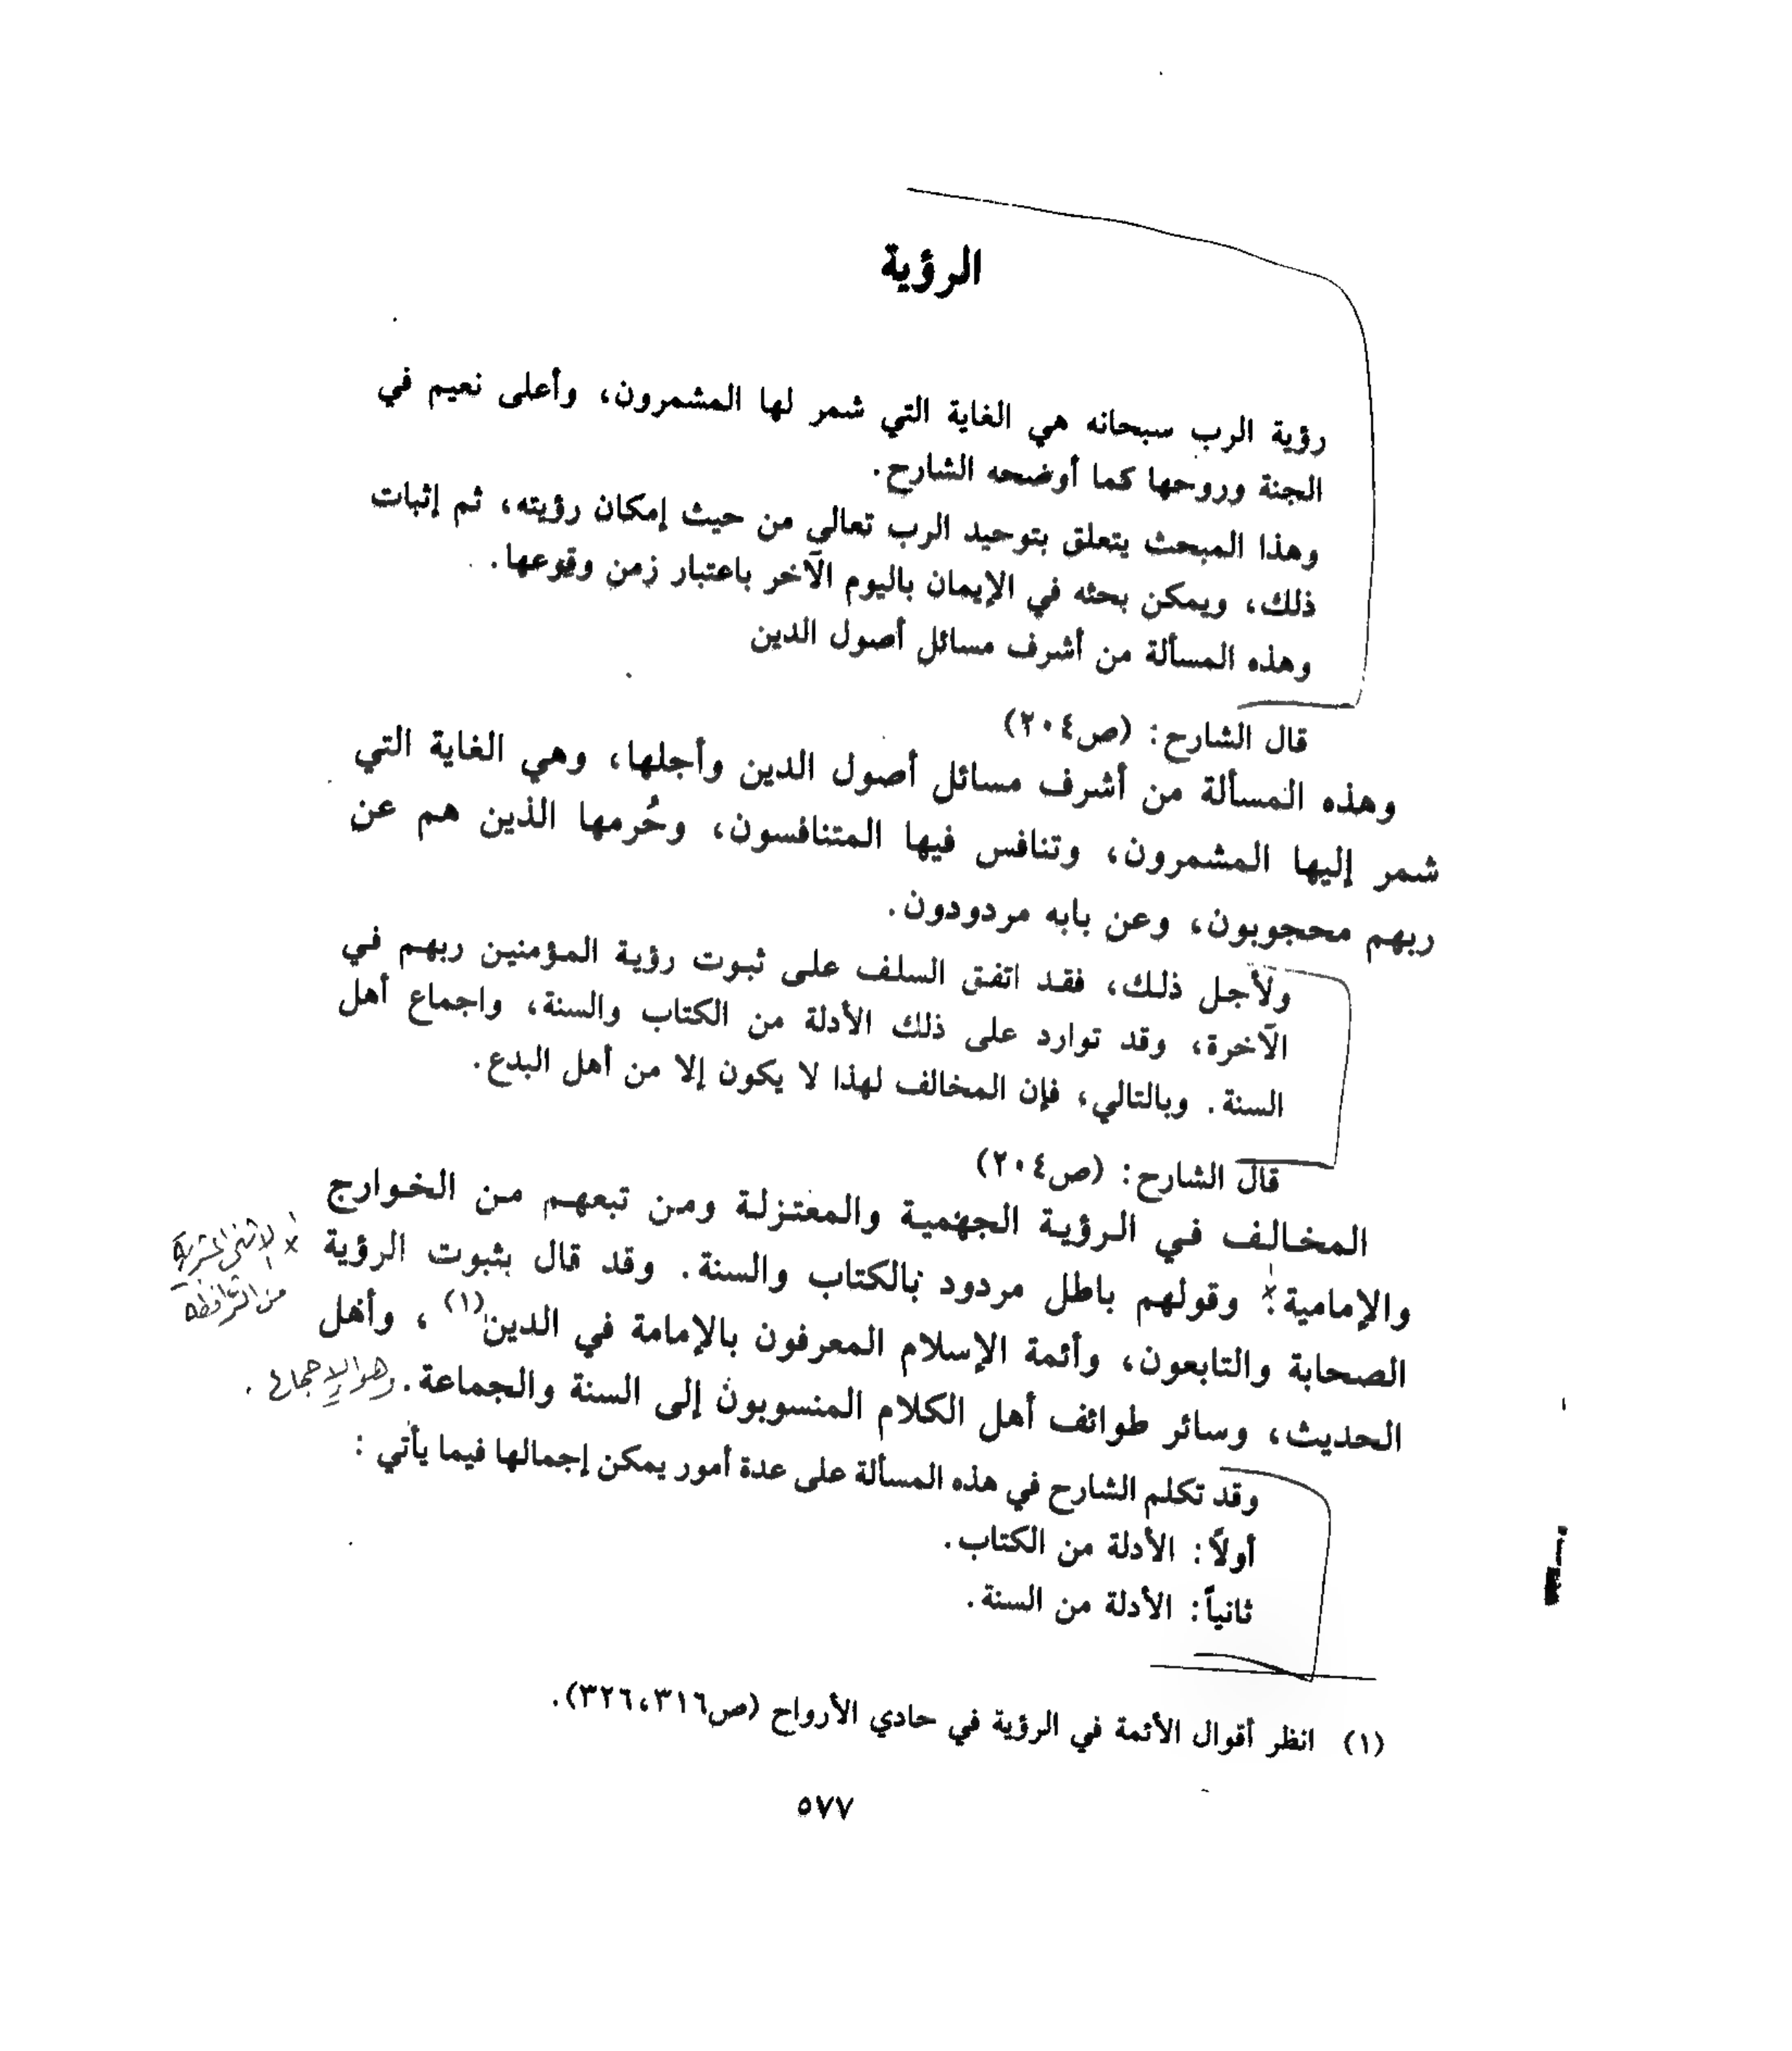 الرؤية
رؤية الرب سبحانه هي الغاية التي شمر لها المشمرون، وأعلى نعيم في
الجنة وروحها كما أوضحه الشارح.
وهذا المبحث يتعلق بتوحيد الرب تعالى من حيث إمكان رؤيته، ثم إثبات
ذلك، ويمكن بحثه في الإيمان باليوم الآخر باعتبار زمن وقوعها.
وهذه المسألة من أشرف مسائل أصول الدين
قال الشارح: (ص٢٠٤)
وهذه المسألة من أشرف مسائل أصول الدين وأجلها، وهي الغاية التي
شمر إليها المشمرون، وتنافس فيها المتنافسون، وحُرمها الذين هم عن
ربهم محجوبون، وعن بابه مردودون.
ولأجل ذلك، فقد اتفق السلف على ثبوت رؤية المؤمنين ربهم في
الآخرة، وقد توارد على ذلك الأدلة من الكتاب والسنة، واجماع أهل
السنة. وبالتالي، فإن المخالف لهذا لا يكون إلا من أهل البدع.
قال الشارح: (ص٢٠٤)
المخالف في الرؤية الجهمية والمعتزلة ومن تبعهم من الخوارج
والإمامية. وقولهم باطل مردود بالكتاب والسنة. وقد قال بثبوت الرؤية
× الاثني عشرية
من الرافضة
الصحابة والتابعون، وأئمة الإسلام المعرفون بالإمامة في الدين(١)، وأهل
الحديث، وسائر طوائف أهل الكلام المنسوبون إلى السنة والجماعة. وهو الإجماع.
وقد تكلم الشارح في هذه المسألة على عدة أمور يمكن إجمالها فيما يأتي:
أولاً: الأدلة من الكتاب.
ثانياً: الأدلة من السنة.
(١) انظر أقوال الأئمة في الرؤية في حادي الأرواح (ص٣١٦، ٣٢٦).
٥٧٧